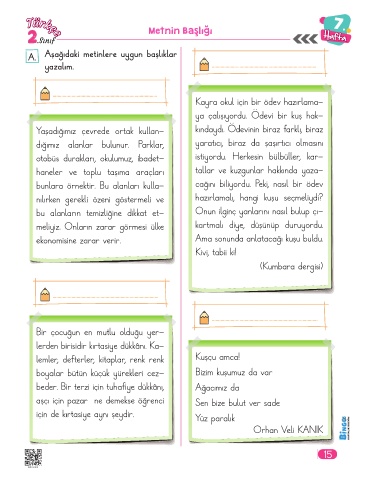 Türkçe
2.Sınıf
Metnin Başlığı
7.
Hafta
A. Aşağıdaki metinlere uygun başlıklar
yazalım.
Yaşadığımız çevrede ortak kullan-
dığımız alanlar bulunur. Parklar,
otobüs durakları, okulumuz, ibadet-
haneler ve toplu taşıma araçları
bunlara örnektir. Bu alanları kulla-
nılırken gerekli özeni göstermeli ve
bu alanların temizliğine dikkat et-
meliyiz. Onların zarar görmesi ülke
ekonomisine zarar verir.
Bir çocuğun en mutlu olduğu yer-
lerden birisidir kırtasiye dükkânı. Ka-
lemler, defterler, kitaplar, renk renk
boyalar bütün küçük yürekleri cez-
beder. Bir terzi için tuhafiye dükkânı,
aşçı için pazar ne demekse öğrenci
için de kırtasiye aynı şeydir.
Kayra okul için bir ödev hazırlama-
ya çalışıyordu. Ödevi bir kuş hak-
kındaydı. Ödevinin biraz farklı, biraz
yaratıcı, biraz da şaşırtıcı olmasını
istiyordu. Herkesin bülbüller, kar-
tallar ve kuzgunlar hakkında yaza-
cağını biliyordu. Peki, nasıl bir ödev
hazırlamalı, hangi kuşu seçmeliydi?
Onun ilginç yanlarını nasıl bulup çı-
kartmalı diye, düşünüp duruyordu.
Ama sonunda anlatacağı kuşu buldu.
Kivi, tabii ki!
(Kumbara dergisi)
Kuşçu amca!
Bizim kuşumuz da var
Ağacımız da
Sen bize bulut ver sade
Yüz paralık
Orhan Veli KANIK
BİNGO
15